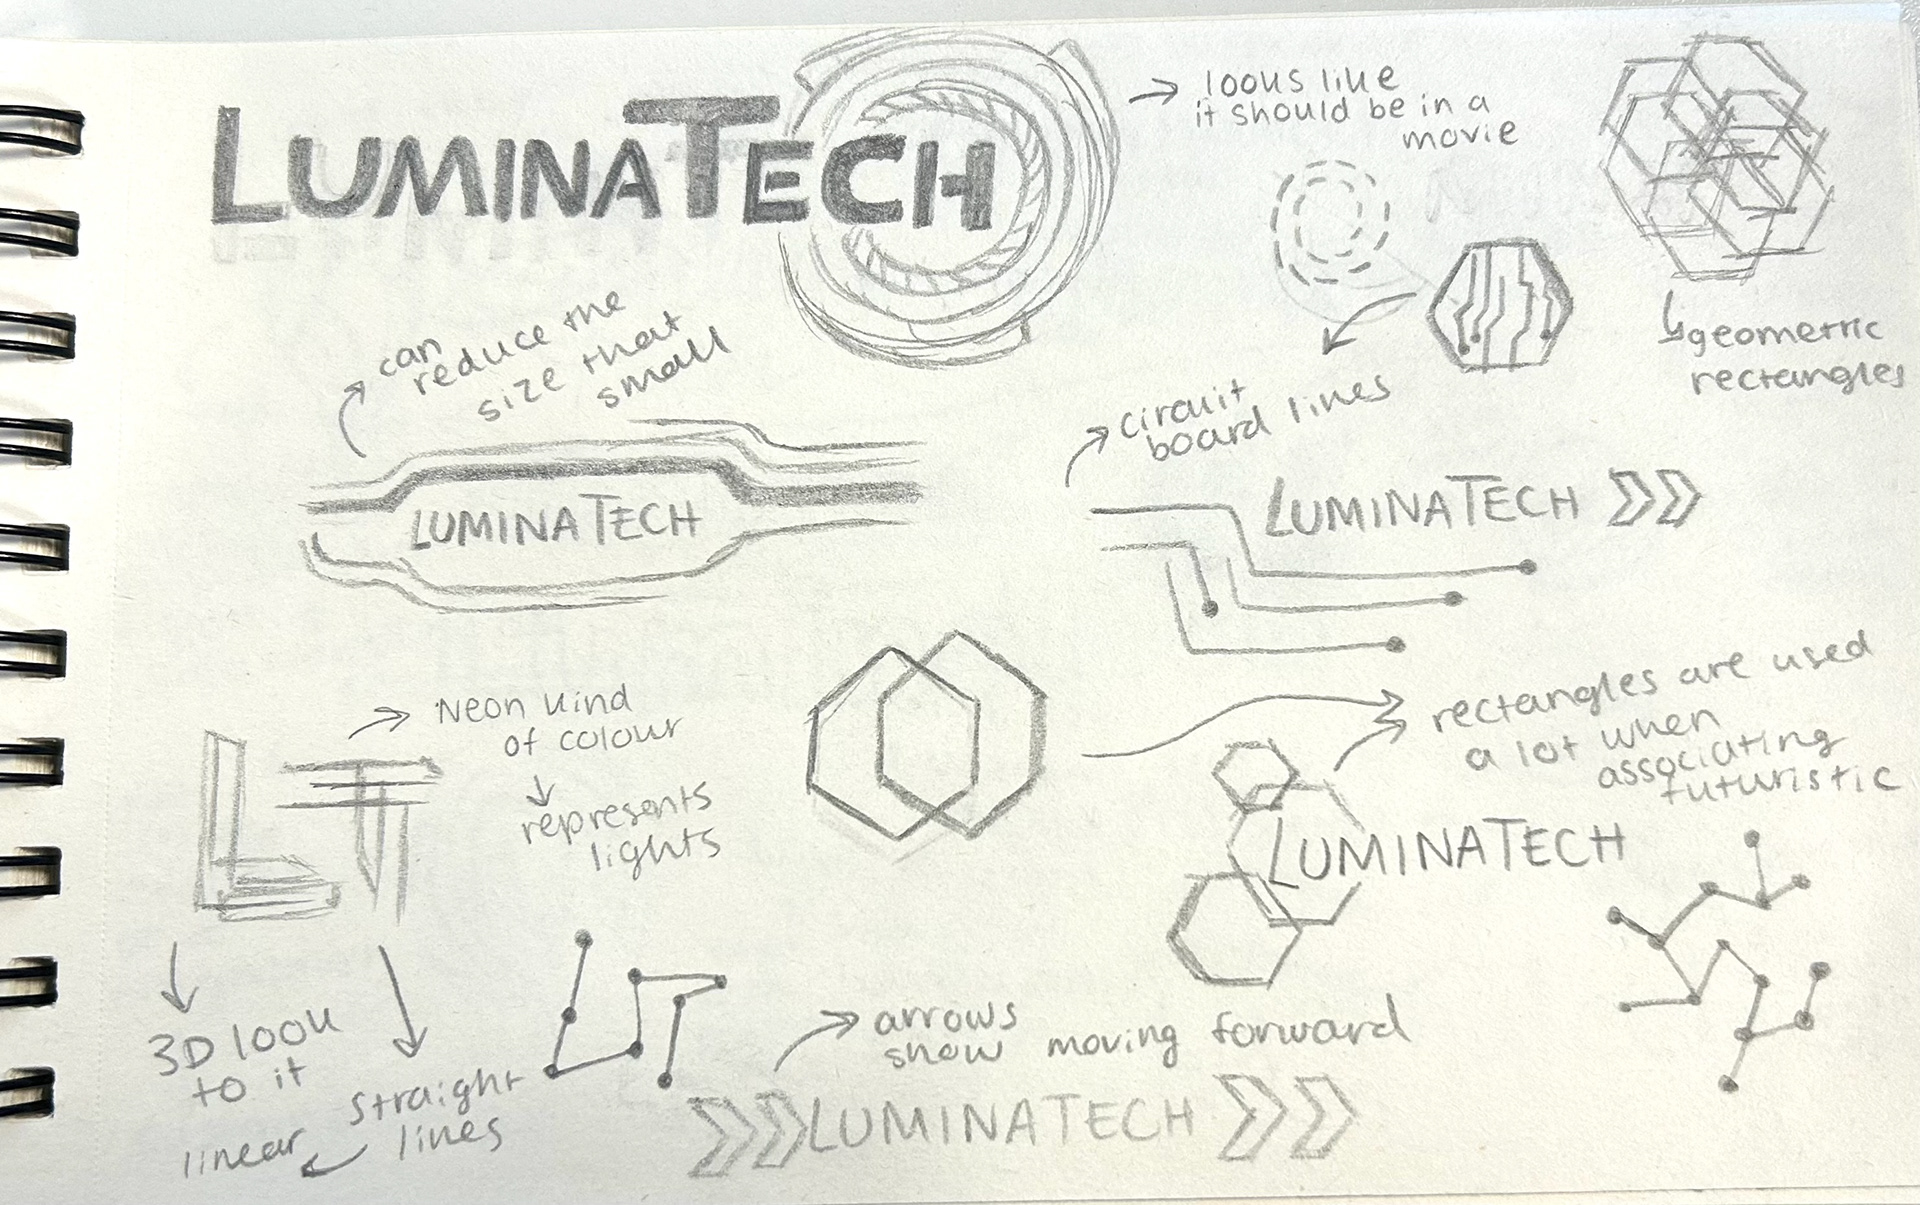 LUMINATECH
→ looks like
it should be in a
movie
can
reduce the
size that
small
geometric
rectangles
circuit
board lines
LUMINATECH
LUMINATECH
Neon kind
of colour
represents
lights
rectangles are used
a lot when
associating
futuristic
LT
LUMINATECH
3D look
to it
straight
lines
linear
LT
arrows
show moving forward
LUMINATECH